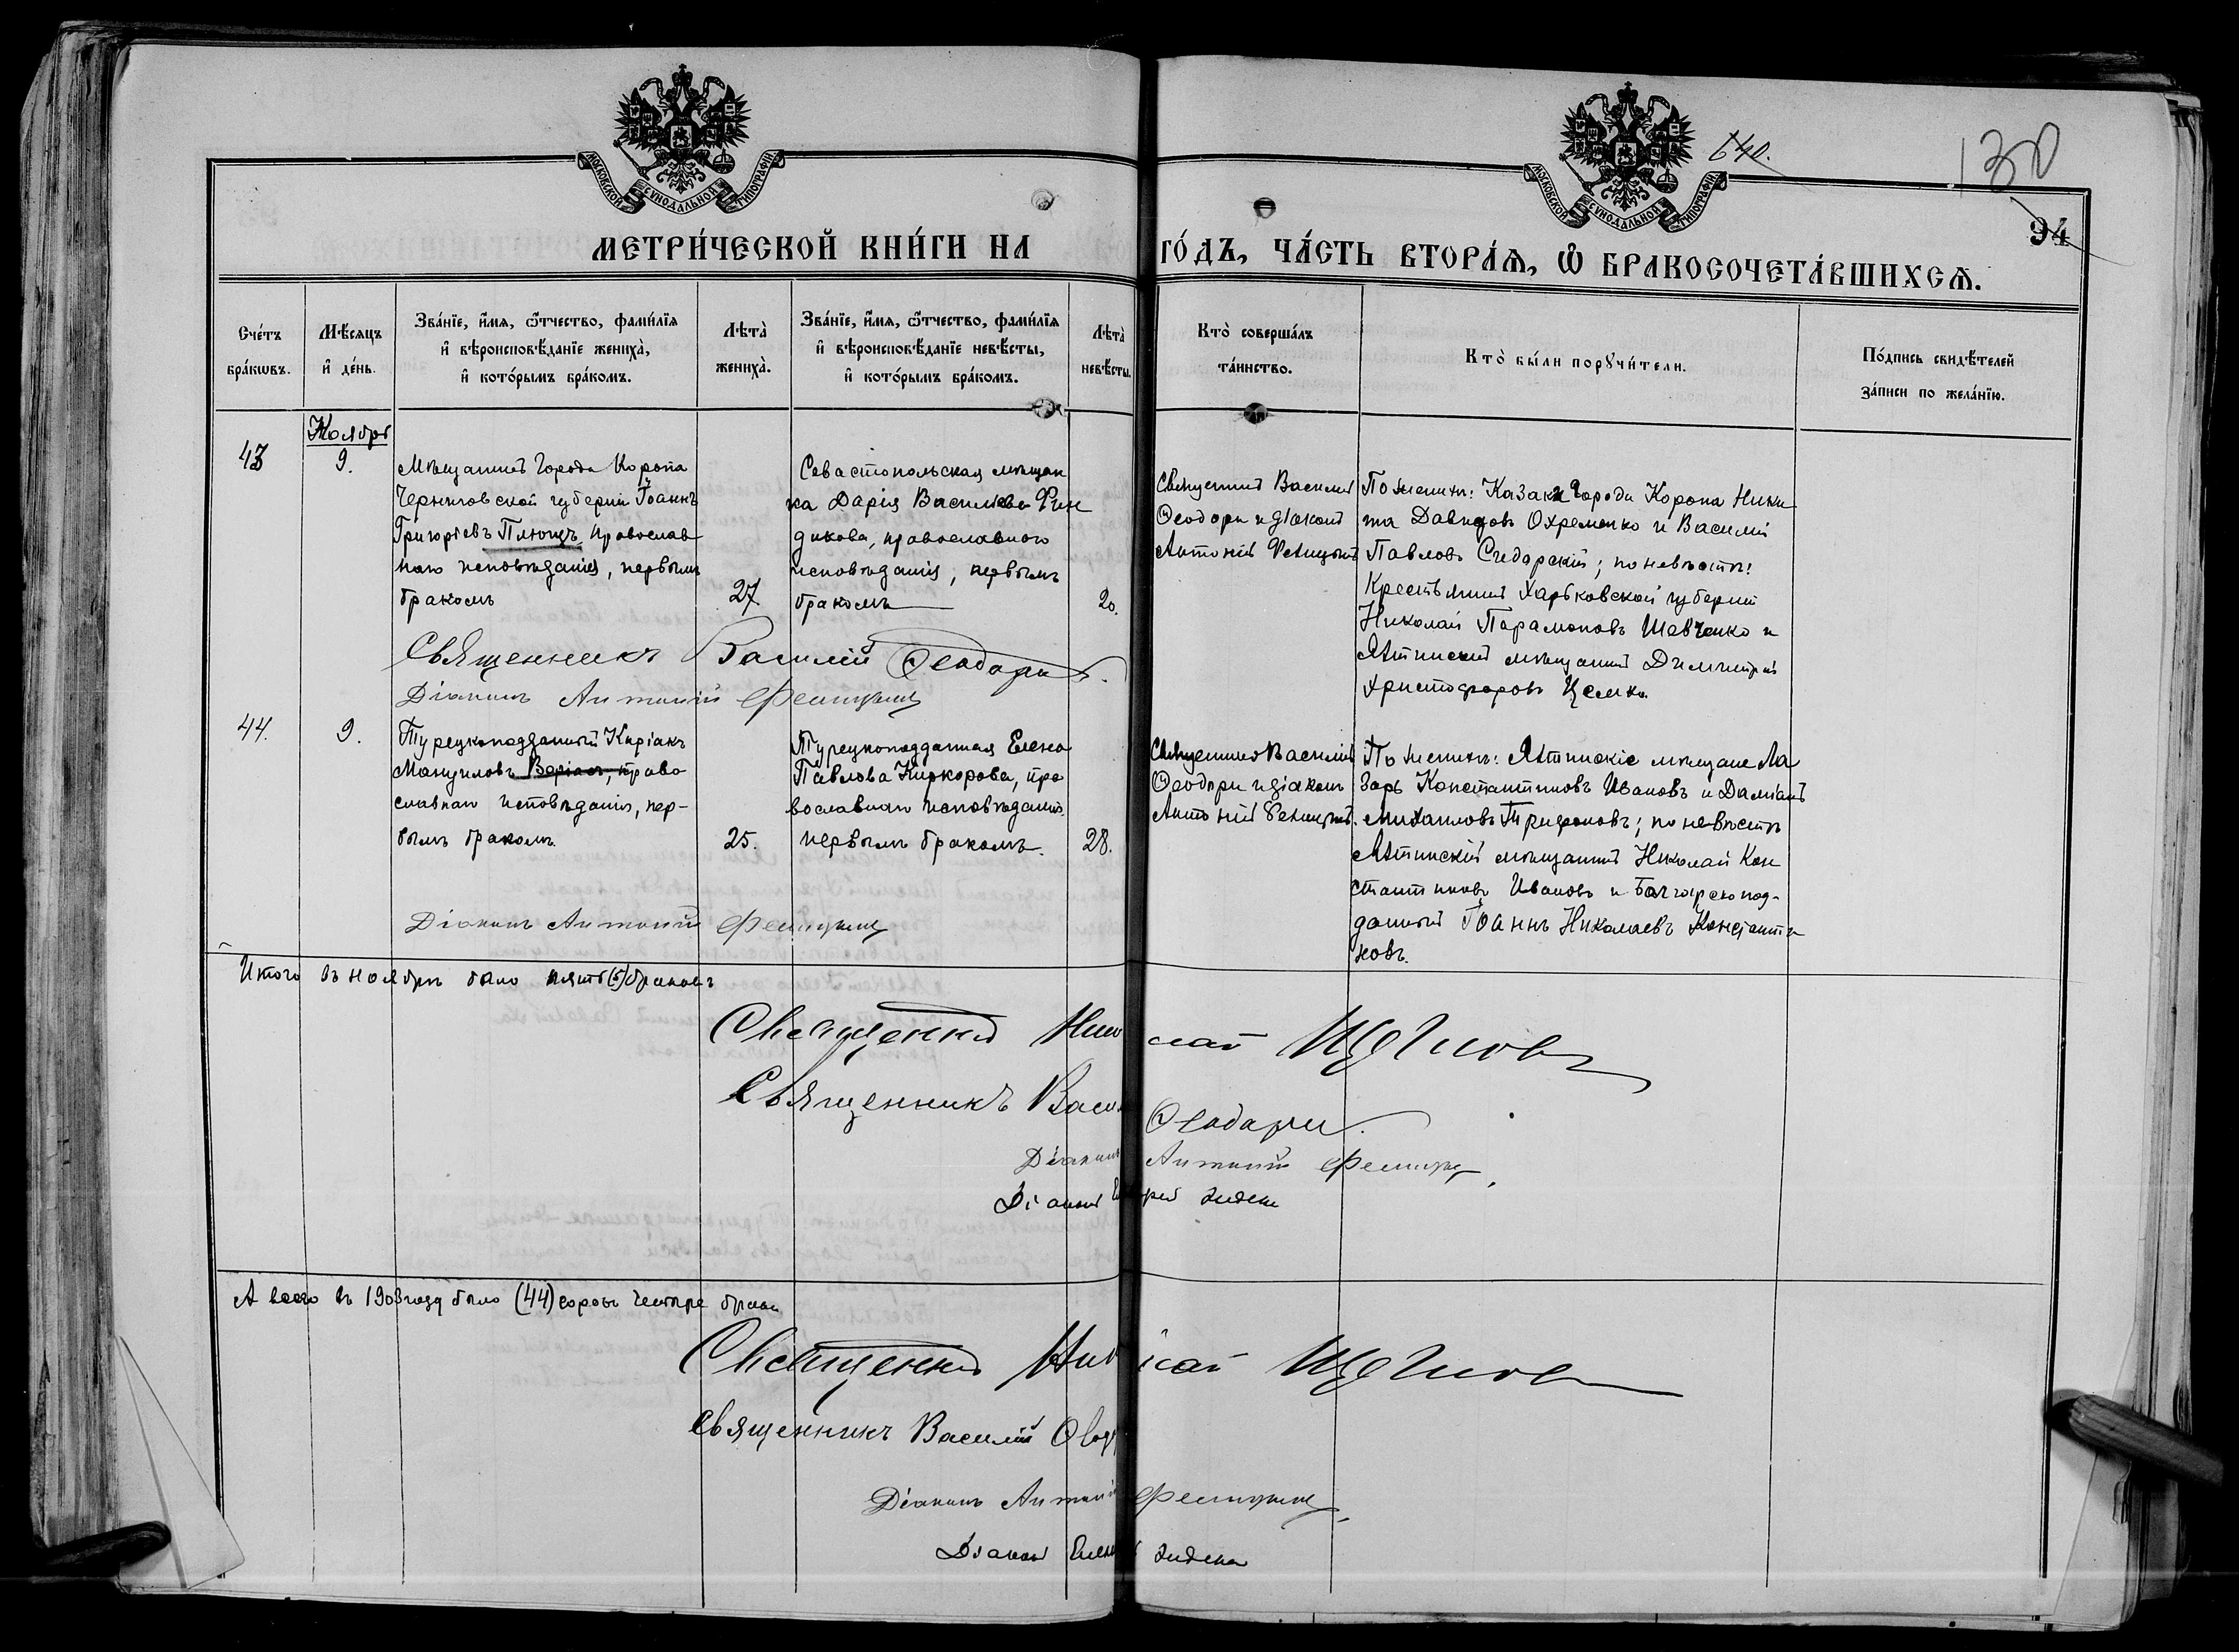 МОСКОВСКОЙ СѴНОДАЛЬНОЙ ТИПОГРАФІИ
МОСКОВСКОЙ СѴНОДАЛЬНОЙ ТИПОГРАФІИ
640.
130
94
МЕТРИ́ЧЕСКОЙ КНИ́ГИ НА ГО́ДЪ, ЧА́СТЬ ВТОРА́Я, Ѡ БРАКОСОЧЕТА́ВШИХСЯ.
Сче́тъ бра́кωвъ.
Мѣ́сяцъ и҆ де́нь.
Зва́нїе, и҆́мя, ѻ҆́тчество, фами́лїя
и҆ вѣроисповѣ́данїе жениха̀,
и҆ кото́рымъ бра́комъ.
Лѣта̀ жениха̀.
Зва́нїе, и҆́мя, ѻ҆́тчество, фами́лїя
и҆ вѣроисповѣ́данїе невѣ́сты,
и҆ кото́рымъ бра́комъ.
Лѣта̀ невѣ́сты.
Кто̀ соверша́лъ
та́инство.
Кто̀ бы́ли порꙋчи́тели.
По́дпись свидѣ́телей
за́писи по жела́нїю.
Ноябрь
43
9.
Мѣщанинъ города Коропа
Черниговской губерніи Іоаннъ
Григоріевъ Плющъ, православ
наго исповѣданія, первымъ
бракомъ
27
Севастопольская мѣщан
ка Дарія Васильева Фин
дикова, православнаго
исповѣданія, первымъ
бракомъ
20.
Священникъ Василій
Ѳеодори и діаконъ
Антоній
По женихѣ: Казаки города Коропа Ники
та Давидовъ Охременко и Василій
Павловъ Сидорскій; по невѣстѣ:
Крестьянинъ Харьковской губерніи
Николай Парамоновъ Шевченко и
Ялтинскій мѣщанинъ Димитрій
Христофоровъ
Священникъ Василій Ѳеодори.
Діаконъ Антоній
44.
9.
Турецкоподданный Киріакъ
Мануиловъ право
славнаго исповѣданія, пер-
вымъ бракомъ.
25.
Турецкоподданная Елена
Павлова Киркорова, пра
вославнаго исповѣданія
первымъ бракомъ.
28.
Священникъ Василій
Ѳеодори и діаконъ
Антоній
По женихѣ: Ялтинскіе мѣщане Ла
зарь Константиновъ Ивановъ и Даміанъ
Михаиловъ Трифоновъ; по невѣстѣ
Ялтинскій мѣщанинъ Николай Кон
стантиновъ Ивановъ и Болгарскопод-
данный Іоаннъ Николаевъ Константи
новъ.
Діаконъ Антоній
Итого въ ноябрѣ было пять (5) браковъ
Священникъ Николай Щегловъ
Священникъ Васи Ѳеодори.
Діаконъ Антоній
Діаконъ
А всего въ 1903 году было (44) сорокъ четыре брака
Священникъ Николай Щегловъ
Священникъ Василій Ѳеод
Діаконъ Антоній
Діаконъ